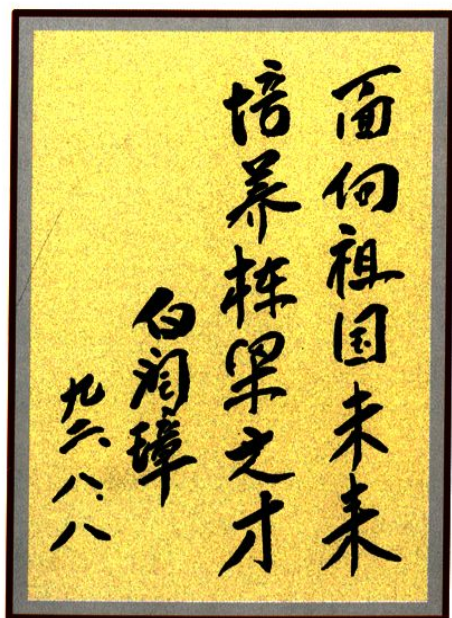 面向祖国未来
培养栋梁之才
白润璋
九六、八、八